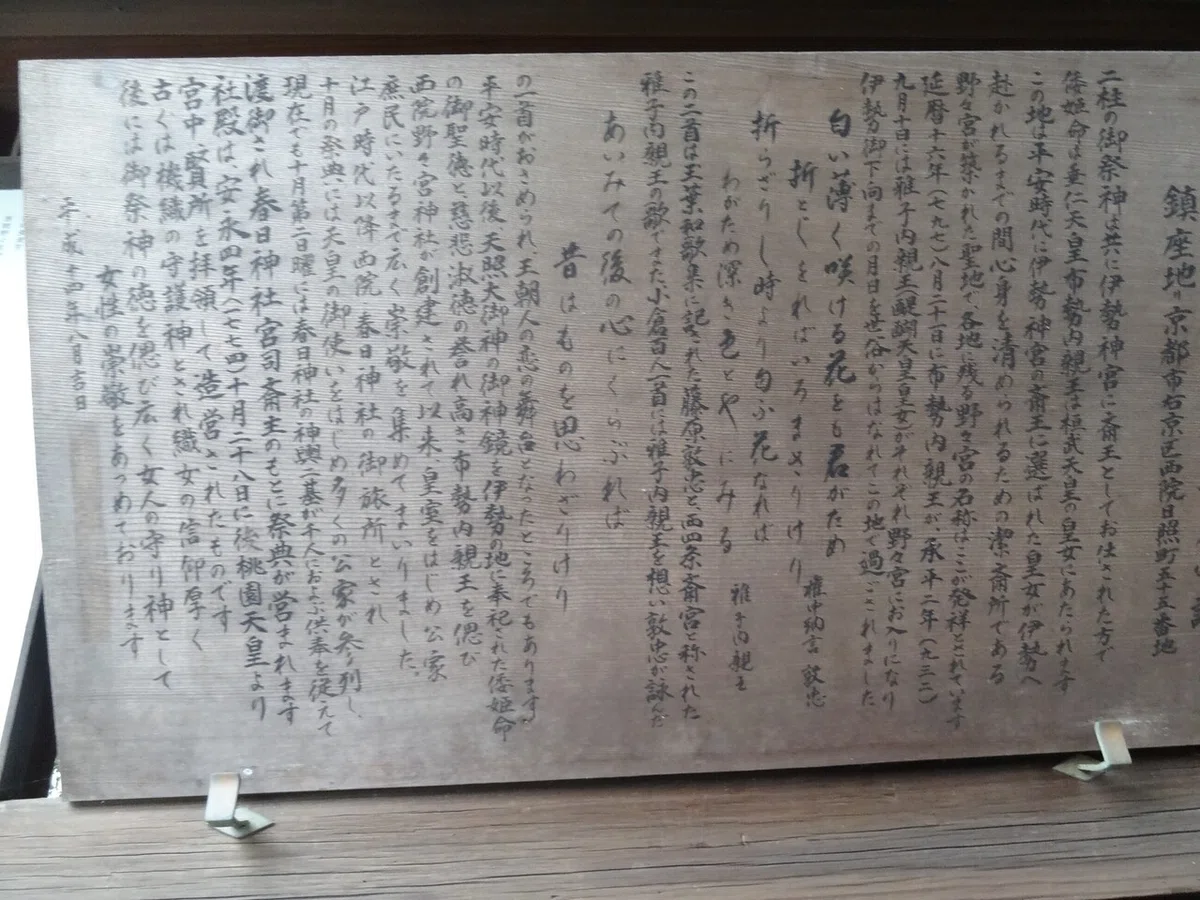 鎮座地 京都市右京区西院日照町五十五番地
二柱の御祭神は共に伊勢神宮に斎王としてお仕された方で
倭姫命は垂仁天皇布勢内親王は桓武天皇の皇女にあたられます
この地は平安時代に伊勢神宮の斎王に選ばれた皇女が伊勢へ
赴かれるまでの間心身を清められるための潔斎所である
野々宮が築かれた聖地で、各地に残る野々宮の名称はここが発祥とされています
延暦十六年(七九七)八月二十一日に布勢内親王が、承平二年(九三二)
九月十日には雅子内親王(醍醐天皇皇女)がそれぞれ野々宮にお入りになり
伊勢御下向までの月日を世俗からはなれてこの地で過ごされました
白い薄く咲ける花をも君がため
折としをればいろまさりけり
権中納言 敦忠
折らざりし時より匂ふ花なれば
わがため深き色とやにみる
雅子内親王
この二首は玉葉和歌集に記された藤原敦忠と、西四条斎宮と称された
雅子内親王の歌でまた小倉百人一首には雅子内親王を想い敦忠が詠んだ
あいみての後の心にくらぶれば
昔はものを思わざりけり
の一首がおさめられ、王朝人の恋の舞台となったところでもあります。
平安時代以後天照大御神の御神鏡を伊勢の地に奉祀された倭姫命
の御聖徳と、慈悲淑徳の誉れ高き布勢内親王を偲び
西院野々宮神社が創建されて以来、皇室をはじめ公家
庶民にいたるまで広く崇敬を集めてまいりました。
江戸時代以降西院春日神社の御旅所とされ
十月の祭典には天皇の御使いをはじめ多くの公家が参列し、
現在でも十月第二日曜には春日神社の神輿(二基が千人におよぶ供奉を従えて
渡御され春日神社宮司斎主のもとに祭典が営まれます
社殿は安永四年(一七七四)十月二十八日に後桃園天皇より
宮中賢所を拝領して造営されたものです
古くは機織の守護神とされ織女の信仰厚く
後には御祭神の徳を偲び広く女人の守り神として
女性の崇敬をあつめております
平成十四年八月吉日